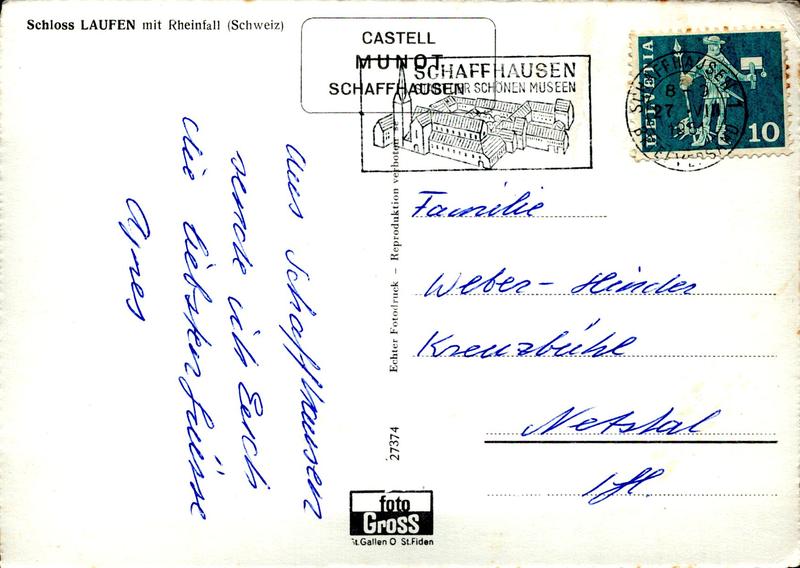 Schloss LAUFEN mit Rheinfall (Schweiz)
CASTELL
MUNOT
SCHAFFHAUSEN
SCHAFFHAUSEN
SCHÖNEN MUSEEN
HELVETIA
10
SCHAFFHAUSEN 1
Aus Schaffhausen
sende ich Euch
die liebsten Grüsse
Agnes
Echter Fotodruck – Reproduktion verboten
27374
foto
Gross
St.Gallen O St.Fiden
Familie
Weber-Hinder
Kreuzbühl
Netstal